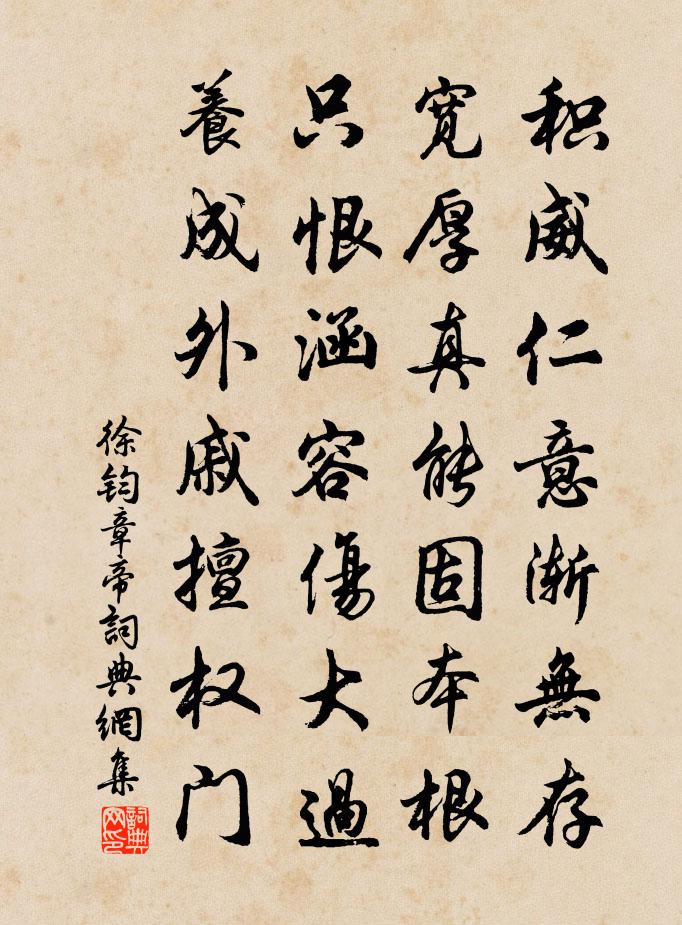 积威仁意渐無存
宽厚真能固本根
只恨涵容傷大過
養成外戚擅权门
徐钧章帝詞典網集
詞典网印